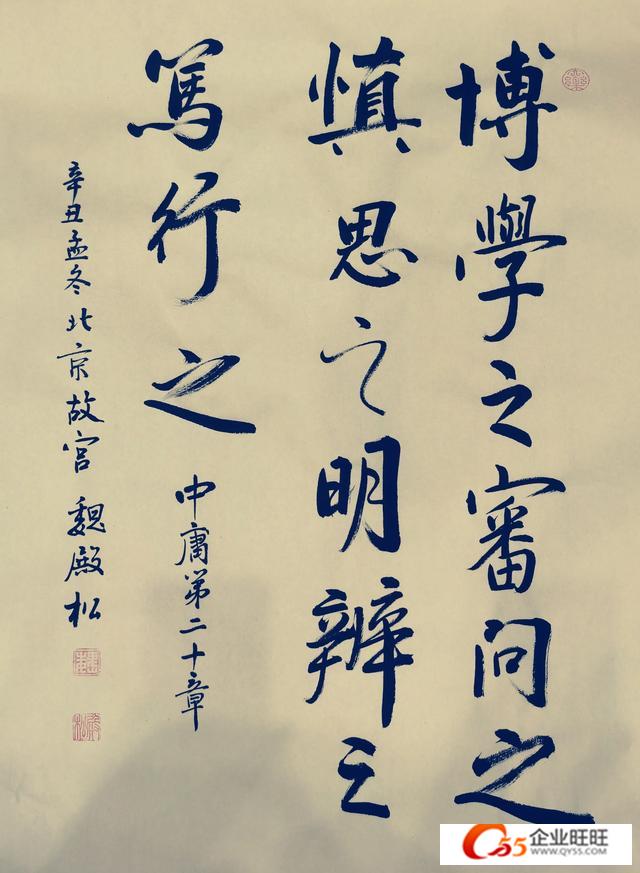 博學之審問之
慎思之明辨之
篤行之
中庸第二十章
辛丑孟冬北京故宮魏殿松
55企业旺旺
WWW.QY55.COM